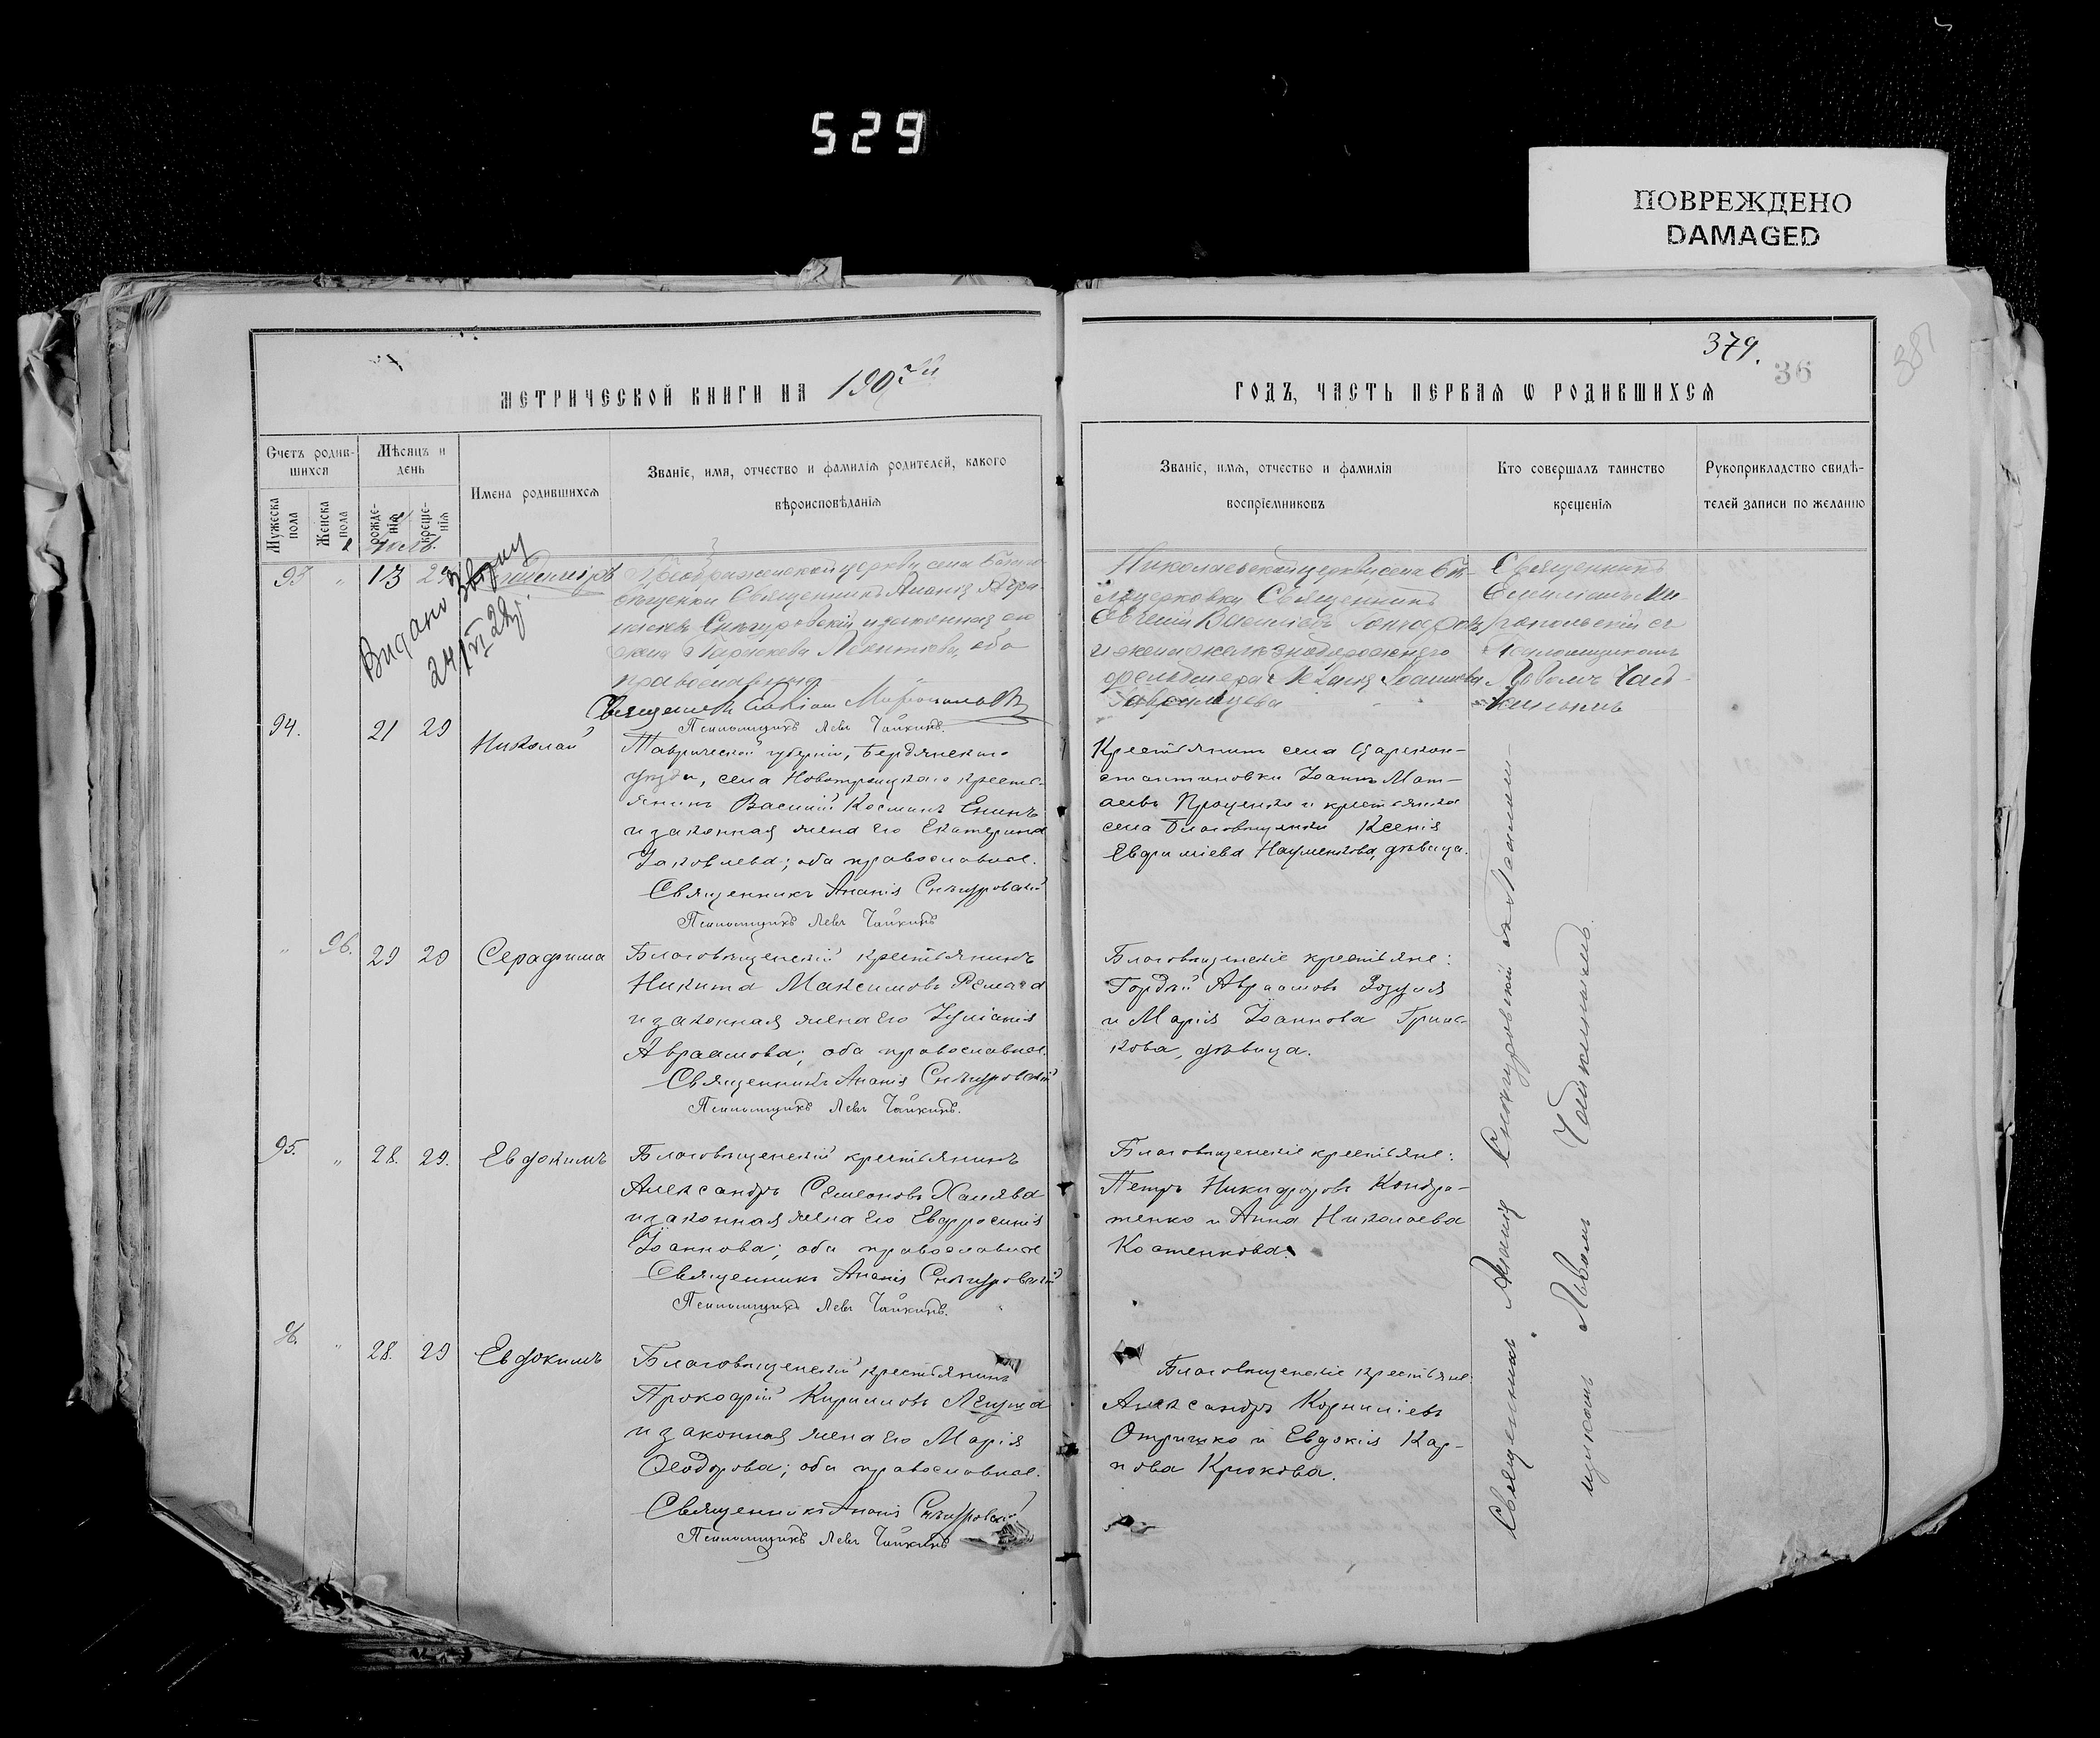 529
ПОВРЕЖДЕНО
DAMAGED
379.
36
МЕТРИЧЕСКОЙ КНИГИ НА 190
ГОДЪ, ЧАСТЬ ПЕРВАЯ Ѡ РОДИВШИХСЯ
Счетъ родив-
шихся
Мужеска пола
Женска пола
Мѣсяцъ и
день
рожде-
нія
креще-
нія
Имена родившихся
Званіе, имя, отчество и фамилія родителей, какого
вѣроисповѣданія
Званіе, имя, отчество и фамилія
воспріемниковъ
Кто совершалъ таинство
крещенія
Рукоприкладство свидѣ-
телей записи по желанію
93 " 13
Преображенской церкви села Благо-
вѣщенки Священникъ Ананія
Снѣгуровскій и законная его
жена оба
православные
Священникъ
Псаломщикъ Левъ Чайкинъ.
Николаевской церкви села Бѣ-
лоцерковки Священникъ
Василіевъ
и жена желѣзнодорожнаго
фельдшера
Священникъ
съ
Псаломщикомъ
Львомъ Чай-
кинымъ
Видано
94. 21 29 Николай
Таврической губерніи, Бердянскаго
уѣзда, села Новотроицкаго кресть-
янинъ Василій Косминъ Енинъ
и законная жена его Екатерина
Іаковлева; оба православные.
Священникъ Ананія Снѣгуровскій
Псаломщикъ Левъ Чайкинъ
Крестьянинъ села Царекон-
стантиновки Іоаннъ Мат-
ѳеевъ Проценко и крестьянка
села Благовѣщенки Ксенія
Евфиміева Науменкова, дѣвица.
" 96. 29 29 Серафима
Благовѣщенскій крестьянинъ
Никита Максимовъ Ремача
и законная жена его Іуліанія
Авраамова; оба православные.
Священникъ Ананія Снѣгуровскій
Псаломщикъ Левъ Чайкинъ.
Благовѣщенскіе крестьяне:
Гордѣй Авраамовъ Зозуля
и Марія Іоаннова Гриш-
кова, дѣвица.
95. " 28. 29. Евдокимъ
Благовѣщенскій крестьянинъ
Александръ Симеоновъ Халява
и законная жена его Евфросинія
Іоаннова; оба православные
Священникъ Ананія Снѣгуровскій
Псаломщикъ Левъ Чайкинъ.
Благовѣщенскіе крестьяне:
Петръ Никифоровъ Кондра-
тенко и Анна Николаева
Костенкова.
96. " 28. 29 Евдокимъ
Благовѣщенскій крестьянинъ
Прокофій Кирилловъ Легуща
и законная жена его Марія
Ѳеодорова; оба православные.
Священникъ Ананія Снѣгуровскій
Псаломщикъ Левъ Чайкинъ
Благовѣщенскіе крестьяне:
Александръ Корниліевъ
Отришко и Евдокія Кар-
пова Крюкова.
Священникъ Ананія Снѣгуровскій съ Псалом-
щикомъ Львомъ Чайкинымъ.